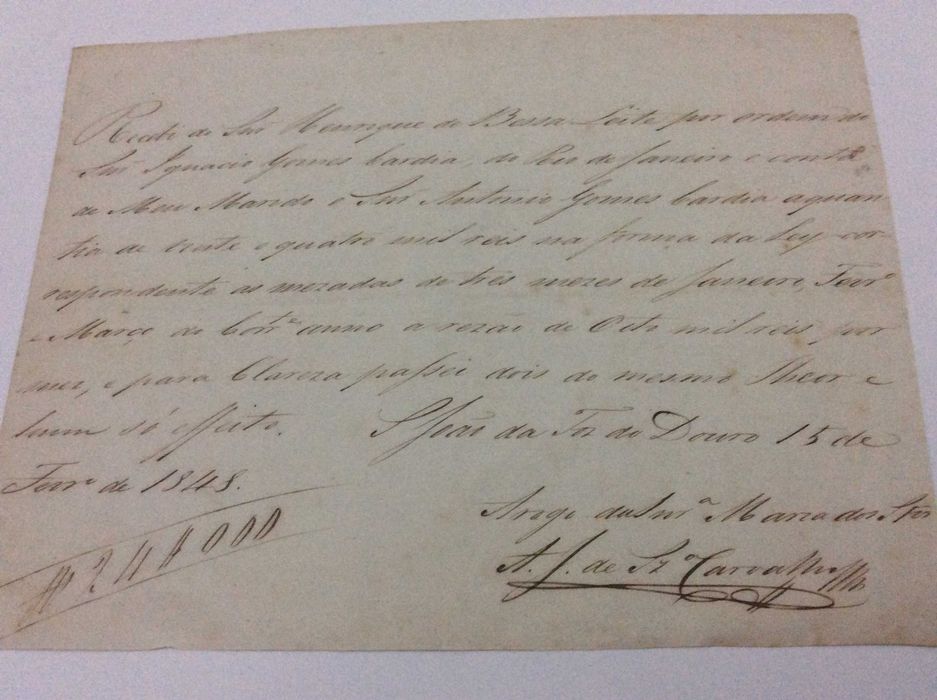 Recebi do Snr Henrique de Bessa Leite por ordem do
Snr Ignacio Gomes Cardia, do Rio de Janeiro e conta
de Meu Marido o Snr Antonio Gomes Cardia a quan-
tia de vente e quatro mil reis na forma da Ley cor-
respondente as mezadas de três mezes de Janeiro, Fevrº
e Março do Corrᵉ anno a rezão de Oito mil reis por
mez, e para Clareza passei dois do mesmo Theor e
hum só effeito. S João da Foz do Douro 15 de
Fevrº de 1848.
Arogo da Snrª Maria dos
# 24#000
A. J. de Sᶻᵃ Carvalho